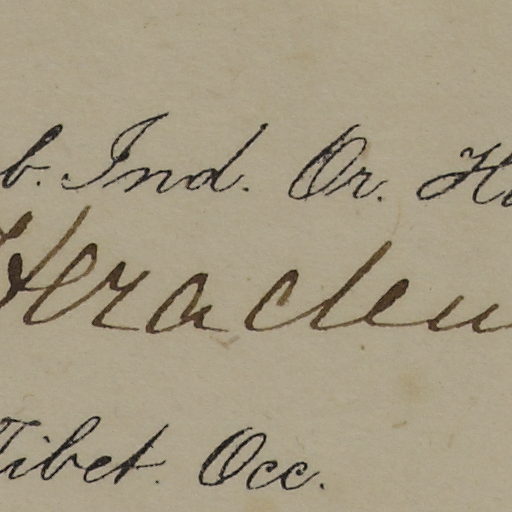 b. Ind. Or. H
Heracleu
Tibet. Occ.